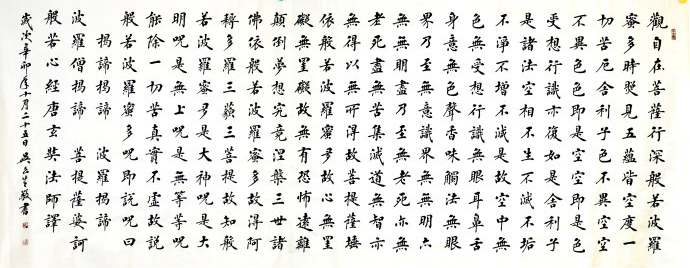 觀自在菩薩行深般若波羅
蜜多時照見五蘊皆空度一
切苦厄舍利子色不異空空
不異色色即是空空即是色
受想行識亦復如是舍利子
是諸法空相不生不滅不垢
不淨不增不減是故空中無
色無受想行識無眼耳鼻舌
身意無色聲香味觸法無眼
界乃至無意識界無無明亦
無無明盡乃至無老死亦無
老死盡無苦集滅道無智亦
無得以無所得故菩提薩埵
依般若波羅蜜多故心無罣
礙無罣礙故無有恐怖遠離
顛倒夢想究竟涅槃三世諸
佛依般若波羅蜜多故得阿
耨多羅三藐三菩提故知般
若波羅蜜多是大神呪是大
明呪是無上呪是無等等呪
能除一切苦真實不虛故說
般若波羅蜜多呪即說呪曰
揭諦揭諦 波羅揭諦
波羅僧揭諦 菩提薩婆訶
般若心經唐玄奘法師譯
歲次辛卯年十月二十五日吳敬書